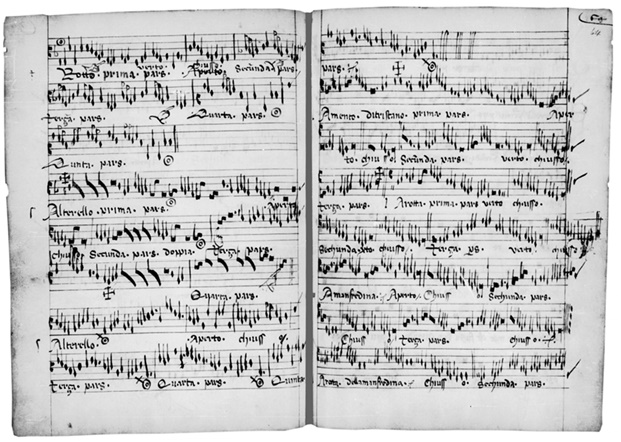 Rotto. prima. pars. verto. Chiusso Aperto Secunda pars.
Terça. pars. Quarta. pars.
Quinta. pars.
Alterello. prima. pars. Aperto
chiusso Secunda. pars. doppia. Terça pars.
Quarta. pars.
Alterello. Aperto. chiuss o.
Terça. pars. Quarta. pars. Quinta
64
pars.
Lamento. di tristano. prima. pars. Aper
to. chiusso Secunda. pars. verto. chiusso
Terça. pars. La rotta. prima. pars verto chiusso.
Sechunda. chiusso. Terça. ps. verto. chiusso
La manfredina. Aperto. Chiuss o Sechunda. pars.
Chiuss o Terça. pars. chiuss o.
La rotta. dela manfredina. Chiuss o Sechunda. pars.